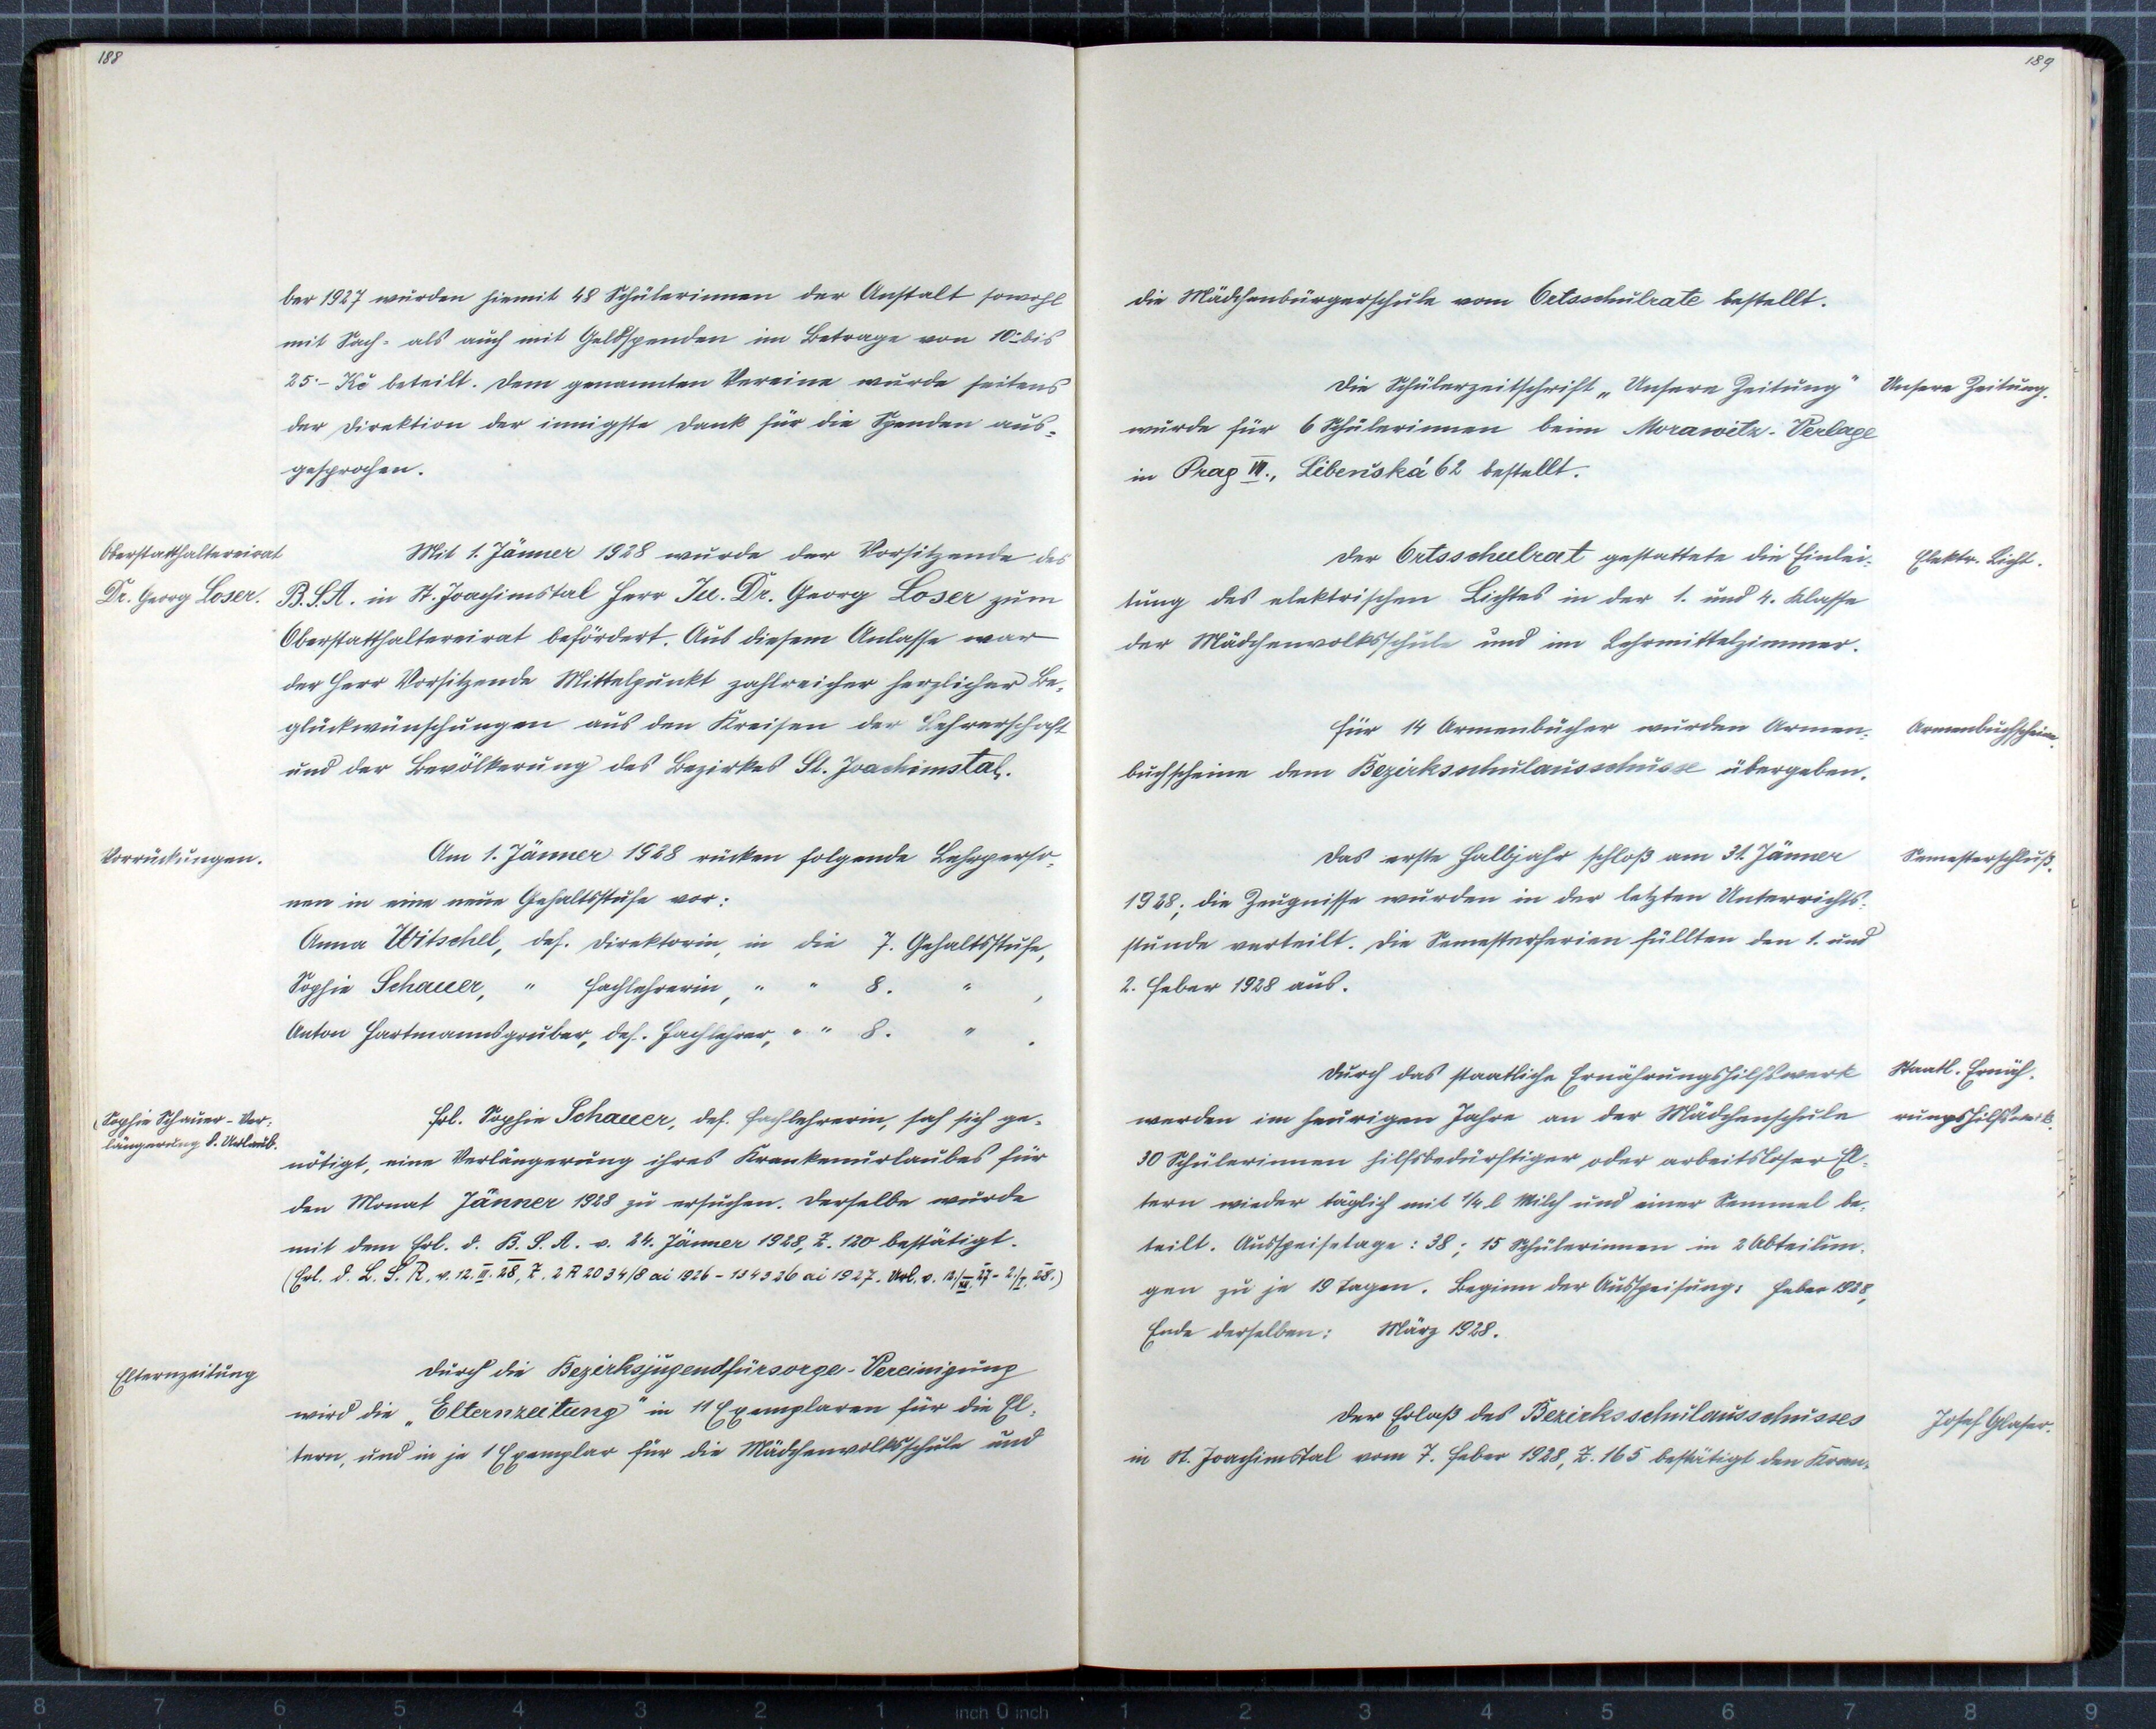 188
ber 1927 wurden hiemit 48 Schülerinnen der Anstalt sowohl
mit Sach- als auch mit Geldspenden im Betrage von 10·- bis
25·- Kč beteilt. Dem genannten Vereine wurde seitens
der Direktion der innigste Dank für die Spenden aus-
gesprochen.
Oberstatthaltereirat
Dr. Georg Loser.
Mit 1. Jänner 1928 wurde der Vorsitzende des
B.S.A. in St. Joachimstal Herr Ju. Dr. Georg Loser zum
Oberstatthaltereirat befördert. Aus diesem Anlasse war
der Herr Vorsitzende Mittelpunkt zahlreicher herzlicher Be-
glückwünschungen aus den Kreisen der Lehrerschaft
und der Bevölkerung des Bezirkes St. Joachimstal.
Vorrückungen.
Am 1. Jänner 1928 rücken folgende Lehrperso-
nen in eine neue Gehaltsstufe vor:
Anna Witschel, def. Direktorin, in die 7. Gehaltsstufe,
Sophie Schauer, " Fachlehrerin, " " 8. " ,
Anton Hartmannsgruber, def. Fachlehrer, " " 8. " .
Sophie Schauer - Ver-
längerung d. Urlaub.
Frl. Sophie Schauer, def. Fachlehrerin, sah sich ge-
nötigt, eine Verlängerung ihres Krankenurlaubes für
den Monat Jänner 1928 zu ersuchen. Derselbe wurde
mit dem Erl. d. B.S.A. v. 24. Jänner 1928, Z. 120 bestätigt.
(Erl. d. L.S.R. v. 12. II. 28, Z. 2 A 2034/8 ai 1926 - 134326 ai 1927. Url. v. 12./XII. 27 - 2./I. 28.)
Elternzeitung
Durch die Bezirksjugendfürsorge-Vereinigung
wird die „Elternzeitung" in 11 Exemplaren für die El-
tern, und in je 1 Exemplar für die Mädchenvolksschule und
189
die Mädchenbürgerschule vom Ortsschulrate bestellt.
Die Schülerzeitschrift „Unsere Zeitung"
Unsere Zeitung.
wurde für 6 Schülerinnen beim Morawitz-Verlage
in Prag VII., Libeňská 62 bestellt.
Der Ortsschulrat gestattete die Einlei-
Elektr. Licht.
tung des elektrischen Lichtes in der 1. und 4. Klasse
der Mädchenvolksschule und im Lehrmittelzimmer.
Für 14 Armenbücher wurden Armen-
Armenbuchscheine.
buchscheine dem Bezirksschulausschusse übergeben.
Das erste Halbjahr schloß am 31. Jänner
Semesterschluß.
1928; die Zeugnisse wurden in der letzten Unterrichts-
stunde verteilt. Die Semesterferien füllten den 1. und
2. Feber 1928 aus.
Durch das staatliche Ernährungshilfswerk
Staatl. Ernäh-
rungshilfswerk.
werden im heurigen Jahre an der Mädchenschule
30 Schülerinnen hilfsbedürftiger oder arbeitsloser El-
tern wieder täglich mit 1/4 l Milch und einer Semmel be-
teilt. Ausspeisetage: 38; 15 Schülerinnen in 2 Abteilun-
gen zu je 19 Tagen. Beginn der Ausspeisung: Feber 1928,
Ende derselben: März 1928.
Der Erlaß des Bezirksschulausschusses
Josef Glaser.
in St. Joachimstal vom 7. Feber 1928, Z. 165 bestätigt den Kran-
8 7 6 5 4 3 2 1 inch 0 inch 1 2 3 4 5 6 7 8 9